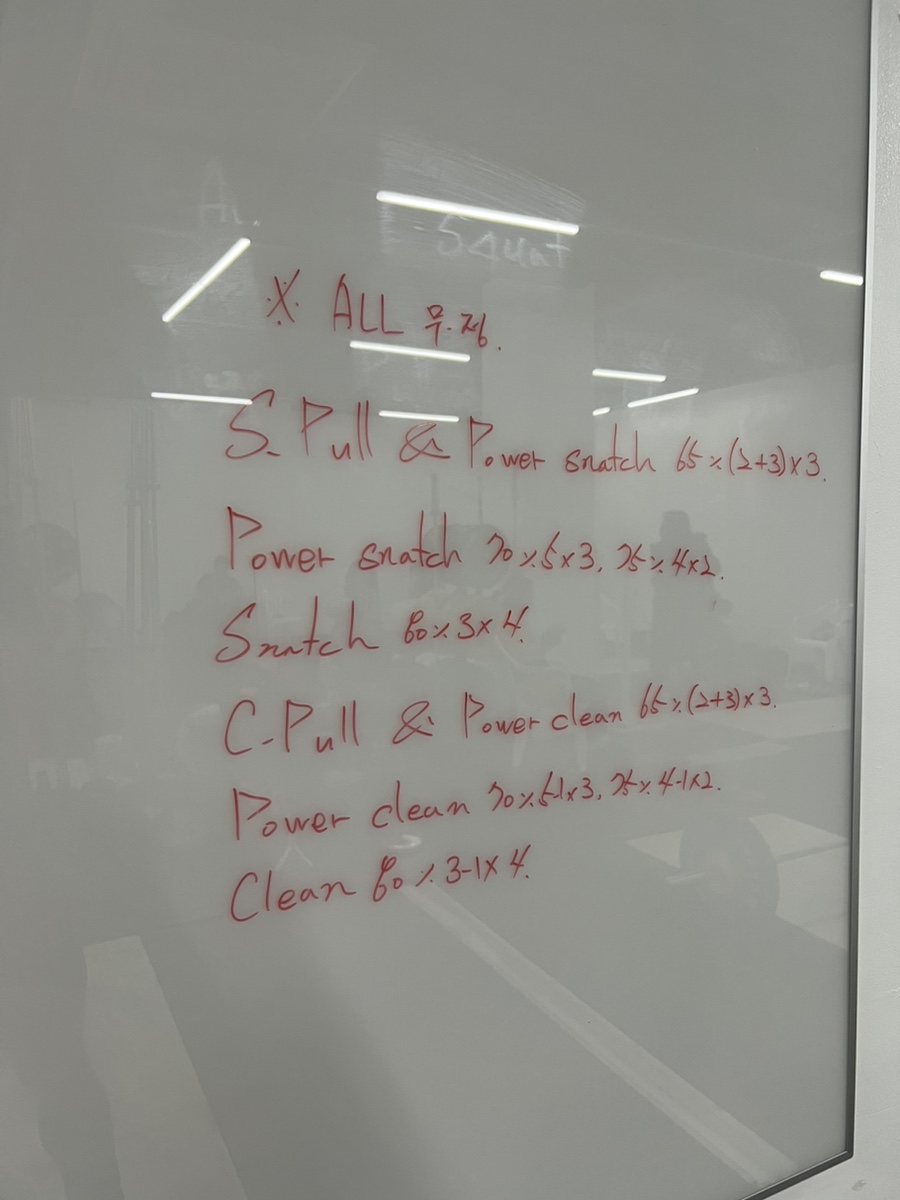 Squat
※ ALL 무.정.
S. Pull & Power snatch 65%(2+3)x3.
Power snatch 70%5x3, 75%4x2.
Snatch 80%3x4.
C-Pull & Power clean 65%(2+3)x3.
Power clean 70%5-1x3, 75%4-1x2.
Clean 80%3-1x4.